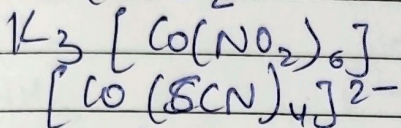 K₃ [Co(NO₂)₆]
[Co(SCN)₄]²⁻